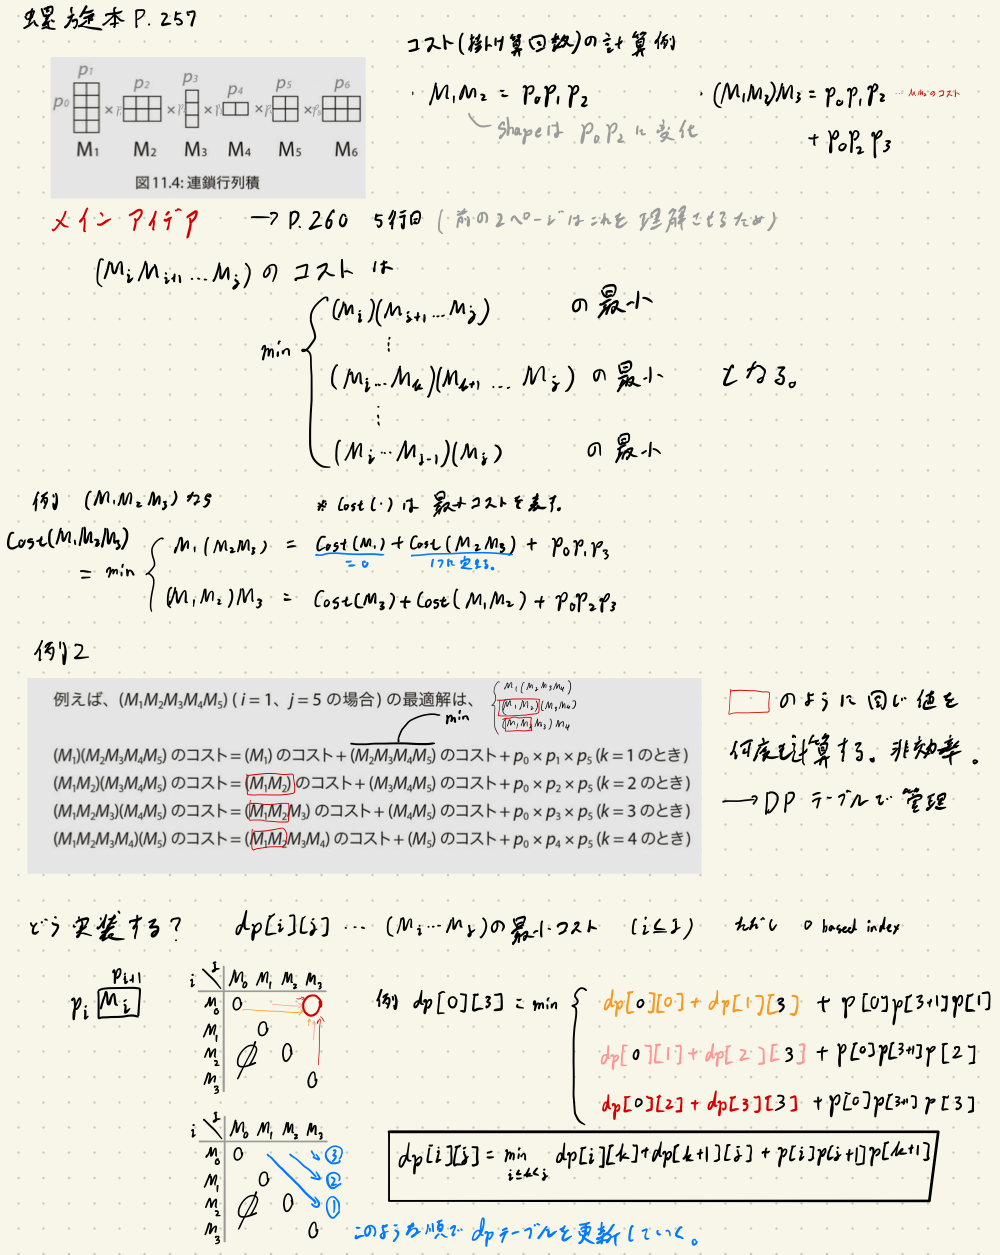 螺旋本 P.257
コスト(掛け算回数)の計算例
p0 p1 p2 p3 p4 p5 p6
M1 M2 M3 M4 M5 M6
図11.4: 連鎖行列積
・ M1M2 = p0p1p2
shapeは p0p2 に変化
・ (M1M2)M3 = p0p1p2 … M1M2のコスト
+ p0p2p3
メインアイデア → P.260 5行目 (前の2ページはこれを理解させるため)
(MiMi+1…Mj) の コスト は
min
(Mi)(Mi+1…Mj) の最小
⋮
(Mi…Mk)(Mk+1…Mj) の最小 となる。
⋮
(Mi…Mj-1)(Mj) の最小
例) (M1M2M3) なら ※ Cost(・) は 最小コストを表す。
Cost(M1M2M3)
= min
M1(M2M3) = Cost(M1) + Cost(M2M3) + p0p1p3
= 0
(M1M2)M3 = Cost(M3) + Cost(M1M2) + p0p2p3
例2
例えば、(M1M2M3M4M5) ( i = 1、j = 5 の場合) の最適解は、
M1(M2M3M4)
(M1M2)(M3M4)
(M1M2M3)M4
min
(M1)(M2M3M4M5) のコスト = (M1) のコスト + (M2M3M4M5) のコスト + p0 × p1 × p5 (k = 1 のとき)
(M1M2)(M3M4M5) のコスト = (M1M2) のコスト + (M3M4M5) のコスト + p0 × p2 × p5 (k = 2 のとき)
(M1M2M3)(M4M5) のコスト = (M1M2M3) のコスト + (M4M5) のコスト + p0 × p3 × p5 (k = 3 のとき)
(M1M2M3M4)(M5) のコスト = (M1M2M3M4) のコスト + (M5) のコスト + p0 × p4 × p5 (k = 4 のとき)
のように 同じ値を
何度も計算する。非効率。
→ DP テーブルで 管理
どう実装する? dp[i][j] … (Mi…Mj)の最小コスト (i≦j) ただし 0 based index
pi+1
pi Mi
i j M0 M1 M2 M3
M0 0
M1 0
M2 0
M3 0
例 dp[0][3] = min
dp[0][0] + dp[1][3] + p[0]p[3+1]p[1]
dp[0][1] + dp[2][3] + p[0]p[3+1]p[2]
dp[0][2] + dp[3][3] + p[0]p[3+1]p[3]
i j M0 M1 M2 M3
M0 0 ③
M1 0 ②
M2 0 ①
M3 0
dp[i][j] = min i≦k<j dp[i][k]+dp[k+1][j] + p[i]p[j+1]p[k+1]
このような順で dpテーブルを更新していく。